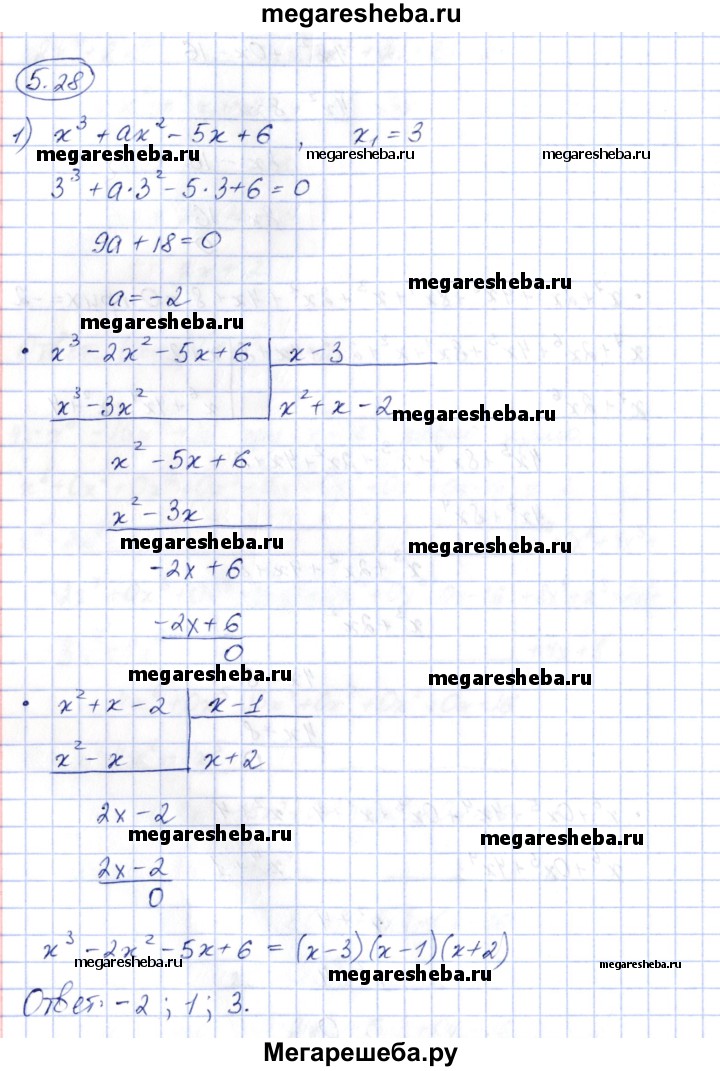 megaresheba.ru
5.28
1) x³ + ax² - 5x + 6 , x₁ = 3
megaresheba.ru megaresheba.ru megaresheba.ru
3³ + a·3² - 5·3 + 6 = 0
9a + 18 = 0
megaresheba.ru
a = -2
megaresheba.ru
• x³ - 2x² - 5x + 6 | x - 3
x³ - 3x² | x² + x - 2
megaresheba.ru
x² - 5x + 6
x² - 3x
megaresheba.ru megaresheba.ru
-2x + 6
-2x + 6
0
megaresheba.ru megaresheba.ru
• x² + x - 2 | x - 1
x² - x | x + 2
2x - 2
megaresheba.ru megaresheba.ru
2x - 2
0
x³ - 2x² - 5x + 6 = (x-3)(x-1)(x+2)
megaresheba.ru megaresheba.ru megaresheba.ru
Ответ: -2; 1; 3.
Мегарешеба.ру